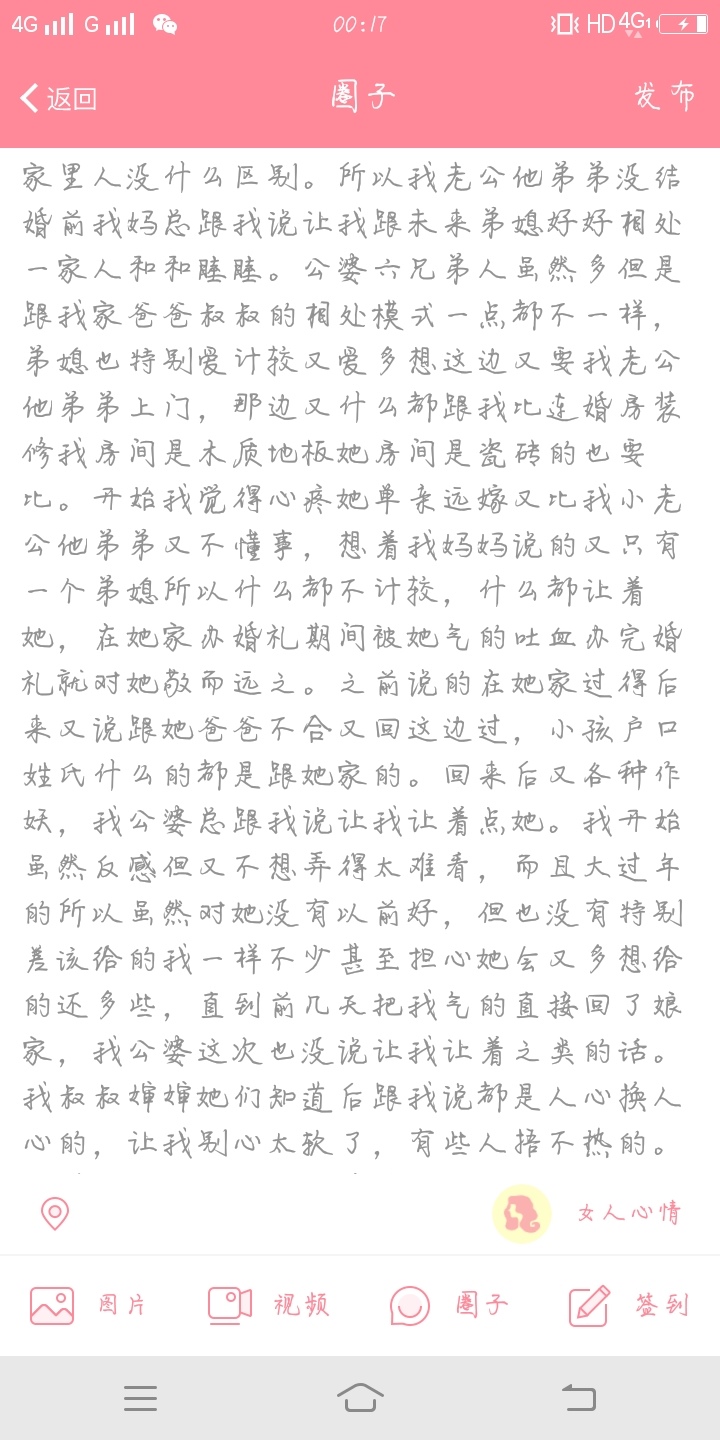 4G G 00:17 HD 4G1
返回 圈子 发布
家里人没什么区别。所以我老公他弟弟没结
婚前我妈总跟我说让我跟未来弟媳好好相处
一家人和和睦睦。公婆六兄弟人虽然多但是
跟我家爸爸叔叔的相处模式一点都不一样，
弟媳也特别爱计较又爱多想这边又要我老公
他弟弟上门，那边又什么都跟我比连婚房装
修我房间是木质地板她房间是瓷砖的也要
比。开始我觉得心疼她单亲远嫁又比我小老
公他弟弟又不懂事，想着我妈妈说的又只有
一个弟媳所以什么都不计较，什么都让着
她，在她家办婚礼期间被她气的吐血办完婚
礼就对她敬而远之。之前说的在她家过得后
来又说跟她爸爸不合又回这边过，小孩户口
姓氏什么的都是跟她家的。回来后又各种作
妖，我公婆总跟我说让我让着点她。我开始
虽然反感但又不想弄得太难看，而且大过年
的所以虽然对她没有以前好，但也没有特别
差该给的我一样不少甚至担心她会又多想给
的还多些，直到前几天把我气的直接回了娘
家，我公婆这次也没说让我让着之类的话。
我叔叔婶婶她们知道后跟我说都是人心换人
心的，让我别心太软了，有些人捂不热的。
女人心情
图片 视频 圈子 签到